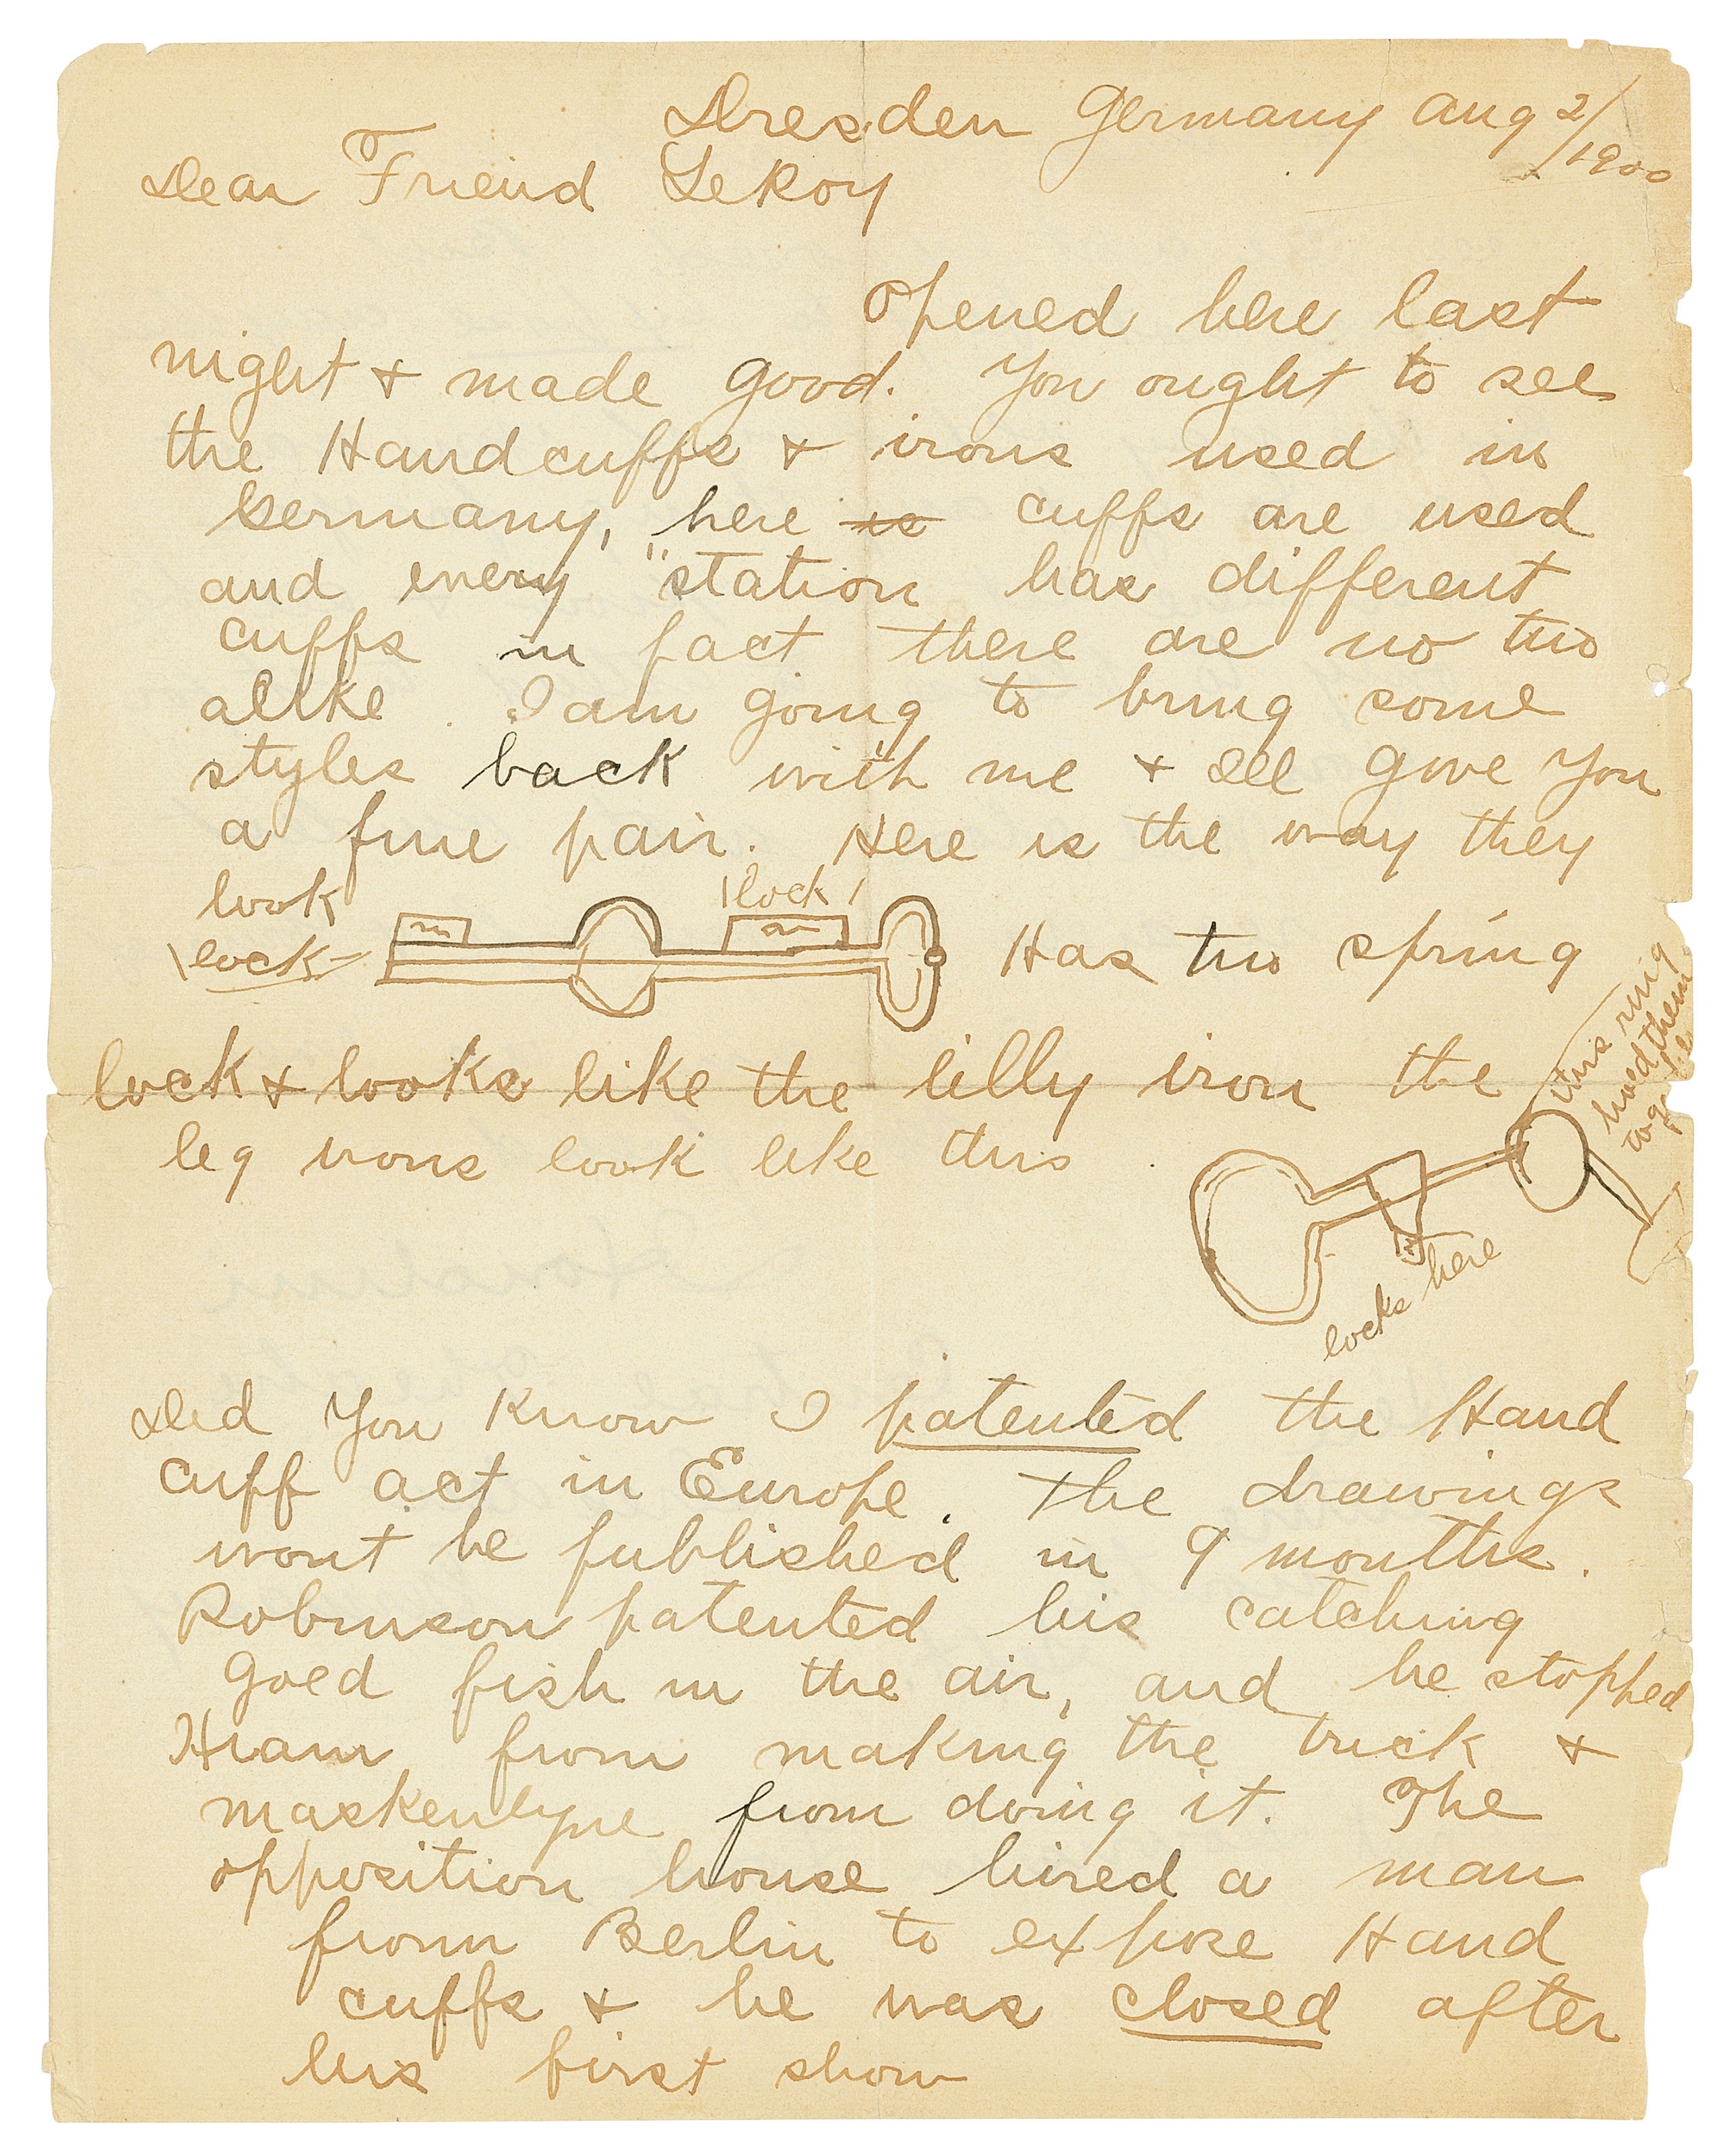 Dresden Germany Aug 2/1900
Dear Friend LeRoy
Opened here last
night & made good. You ought to see
the Handcuffs & irons used in
Germany, here is cuffs are used
and every "station has different
cuffs in fact there are no two
alike. I am going to bring some
styles back with me & Ill give You
a fine pair. Here is the way they
look
lock
lock
Has two spring
lock & looks like the lilly iron the
leg irons look like this
this ring
hold them
together
locks here
Did You Know I patented the Hand
cuff act in Europe. The drawings
wont be published in 9 months.
Robinson patented his catching
gold fish in the air, and he stopped
Hiam from making the trick &
maskenlyne from doing it. The
opposition house hired a man
from Berlin to expose Hand
cuffs & he was closed after
his first show